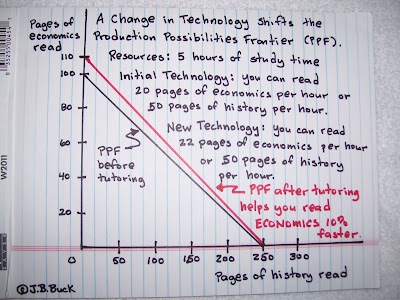 Pages of
economics
read
A Change in Technology Shifts the
Production Possibilities Frontier (PPF).
Resources: 5 hours of study time
Initial Technology: you can read
20 pages of economics per hour or
50 pages of history per hour.
New Technology: you can read
22 pages of economics per hour
or 50 pages of history
per hour.
PPF
before
tutoring
PPF after tutoring
helps you read
ECONOMICS 10%
faster.
110
100
80
60
40
20
0
50
100
150
200
250
300
Pages of history read
©J.B.Buck
W2011